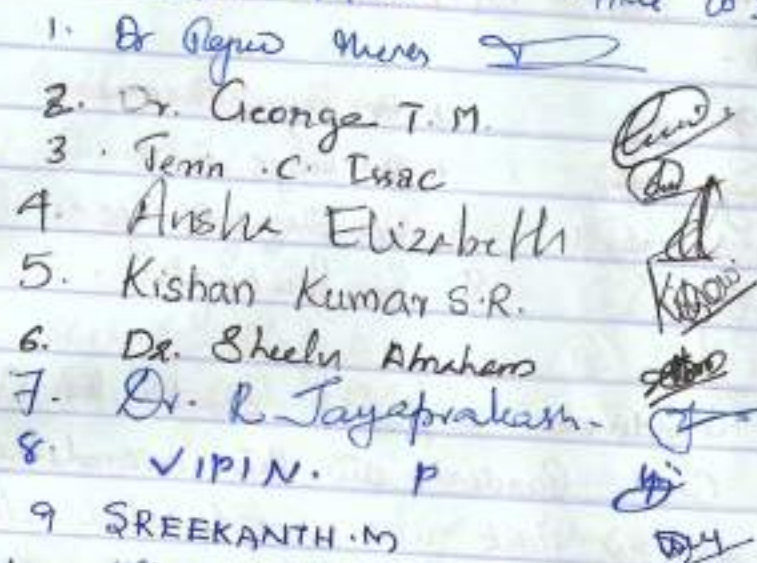 1. Dr
2. Dr. George T. M.
3. Jenin .C. Issac
4. Ansha Elizabeth
5. Kishan Kumar S.R.
6. Dr. Sheela Abraham
7. Dr. R Jayaprakash.
8. VIPIN. P
9 SREEKANTH.M